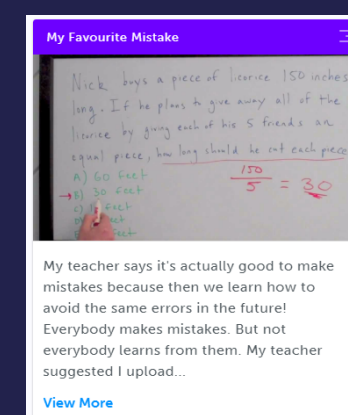 My Favourite Mistake
Nick buys a piece of licorice 150 inches
long. If he plans to give away all of the
licorice by giving each of his 5 friends an
equal piece, how long should he cut each piece
A) 60 feet
150
→ B) 30 feet
5 = 30
C) feet
feet
feet
My teacher says it's actually good to make
mistakes because then we learn how to
avoid the same errors in the future!
Everybody makes mistakes. But not
everybody learns from them. My teacher
suggested I upload...
View More